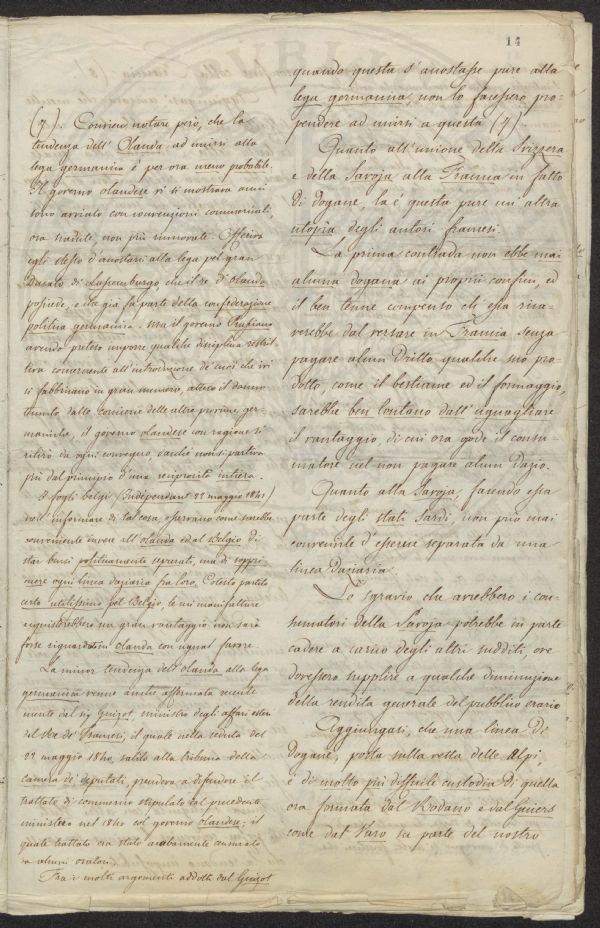 14
(7). Convien notare però, che la
tendenza dell'Olanda ad unirsi alla
lega germanica è per ora meno probabile.
Il governo olandese vi si mostrava anni
sono avviato con convenzioni commerciali,
ora scadute, non più rinnovate. Offeriva
egli stesso d'accostarsi alla lega pel gran
Ducato di Lussemburgo che il re di Olanda
possiede, e che già fa parte della confederazione
politica germanica. Ma il governo Prussiano
avendo preteso imporre qualche disciplina restrit-
tiva concernente all'introduzione de' cuoi che ivi
si fabbricano in gran numero, atteso il danno
temuto dalle Concierie delle altre provincie ger-
maniche, il governo olandese con ragione si
ritirò da ogni convegno, acciò non si partiva
più dal principio d'una reciprocità intiera.
I fogli belgi (Indépendant 22 maggio 1841)
nell'informare di tal cosa, osservano come sarebbe
conveniente invece all'Olanda ed al Belgio di
star bensì politicamente separati, ma di soppri-
mere ogni linea daziaria fra loro. Cotesto partito
certo utilissimo pel Belgio, le cui manifatture
acquisterebbero un gran vantaggio non sarà
forse riguardato in Olanda con ugual favore.
La minor tendenza dell'Olanda alla lega
germanica venne anche affermata recente
mente dal sig. Guizot, ministro degli affari esteri
del Re de' Francesi, il quale nella seduta del
22 maggio 1841, salito alla tribuna della
camera de' deputati, prendeva a difendere il
trattato di commercio stipulato dal precedente
ministero nel 1840 col governo olandese; il
quale trattato era stato acerbamente censurato
da alcuni oratori.
Fra i molti argomenti addotti dal Guizot
quando questa s'accostasse pure alla
lega germanica, non lo facessero pro-
pendere ad unirsi a questa (7)
Quanto all'unione della Svizzera
e della Savoja alla Francia in fatto
di dogane, la è questa pure un'altra
utopia degli autori francesi.
La prima contrada non ebbe mai
alcuna dogana ai proprii confini, ed
il ben tenue compenso ch'essa rica-
verebbe dal versare in Francia senza
pagare alcun dritto qualche suo pro-
dotto, come il bestiame ed il formaggio,
sarebbe ben lontano dall'uguagliare
il vantaggio, di cui ora gode il consu-
matore nel non pagare alcun dazio.
Quanto alla Savoja, facendo essa
parte degli stati Sardi, non può mai
convenirle d'essere separata da una
linea daziaria.
Lo sgravio che avrebbero i con-
sumatori della Savoja potrebbe in parte
cadere a carico degli altri sudditi, ove
dovessero supplire a qualche diminuzione
della rendita generale del pubblico erario
Aggiungasi, che una linea di
dogane, posta sulla vetta delle Alpi,
è di molto più difficile custodia di quella
ora formata dal Rodano e dal Guiers
come dal Varo in parte del nostro